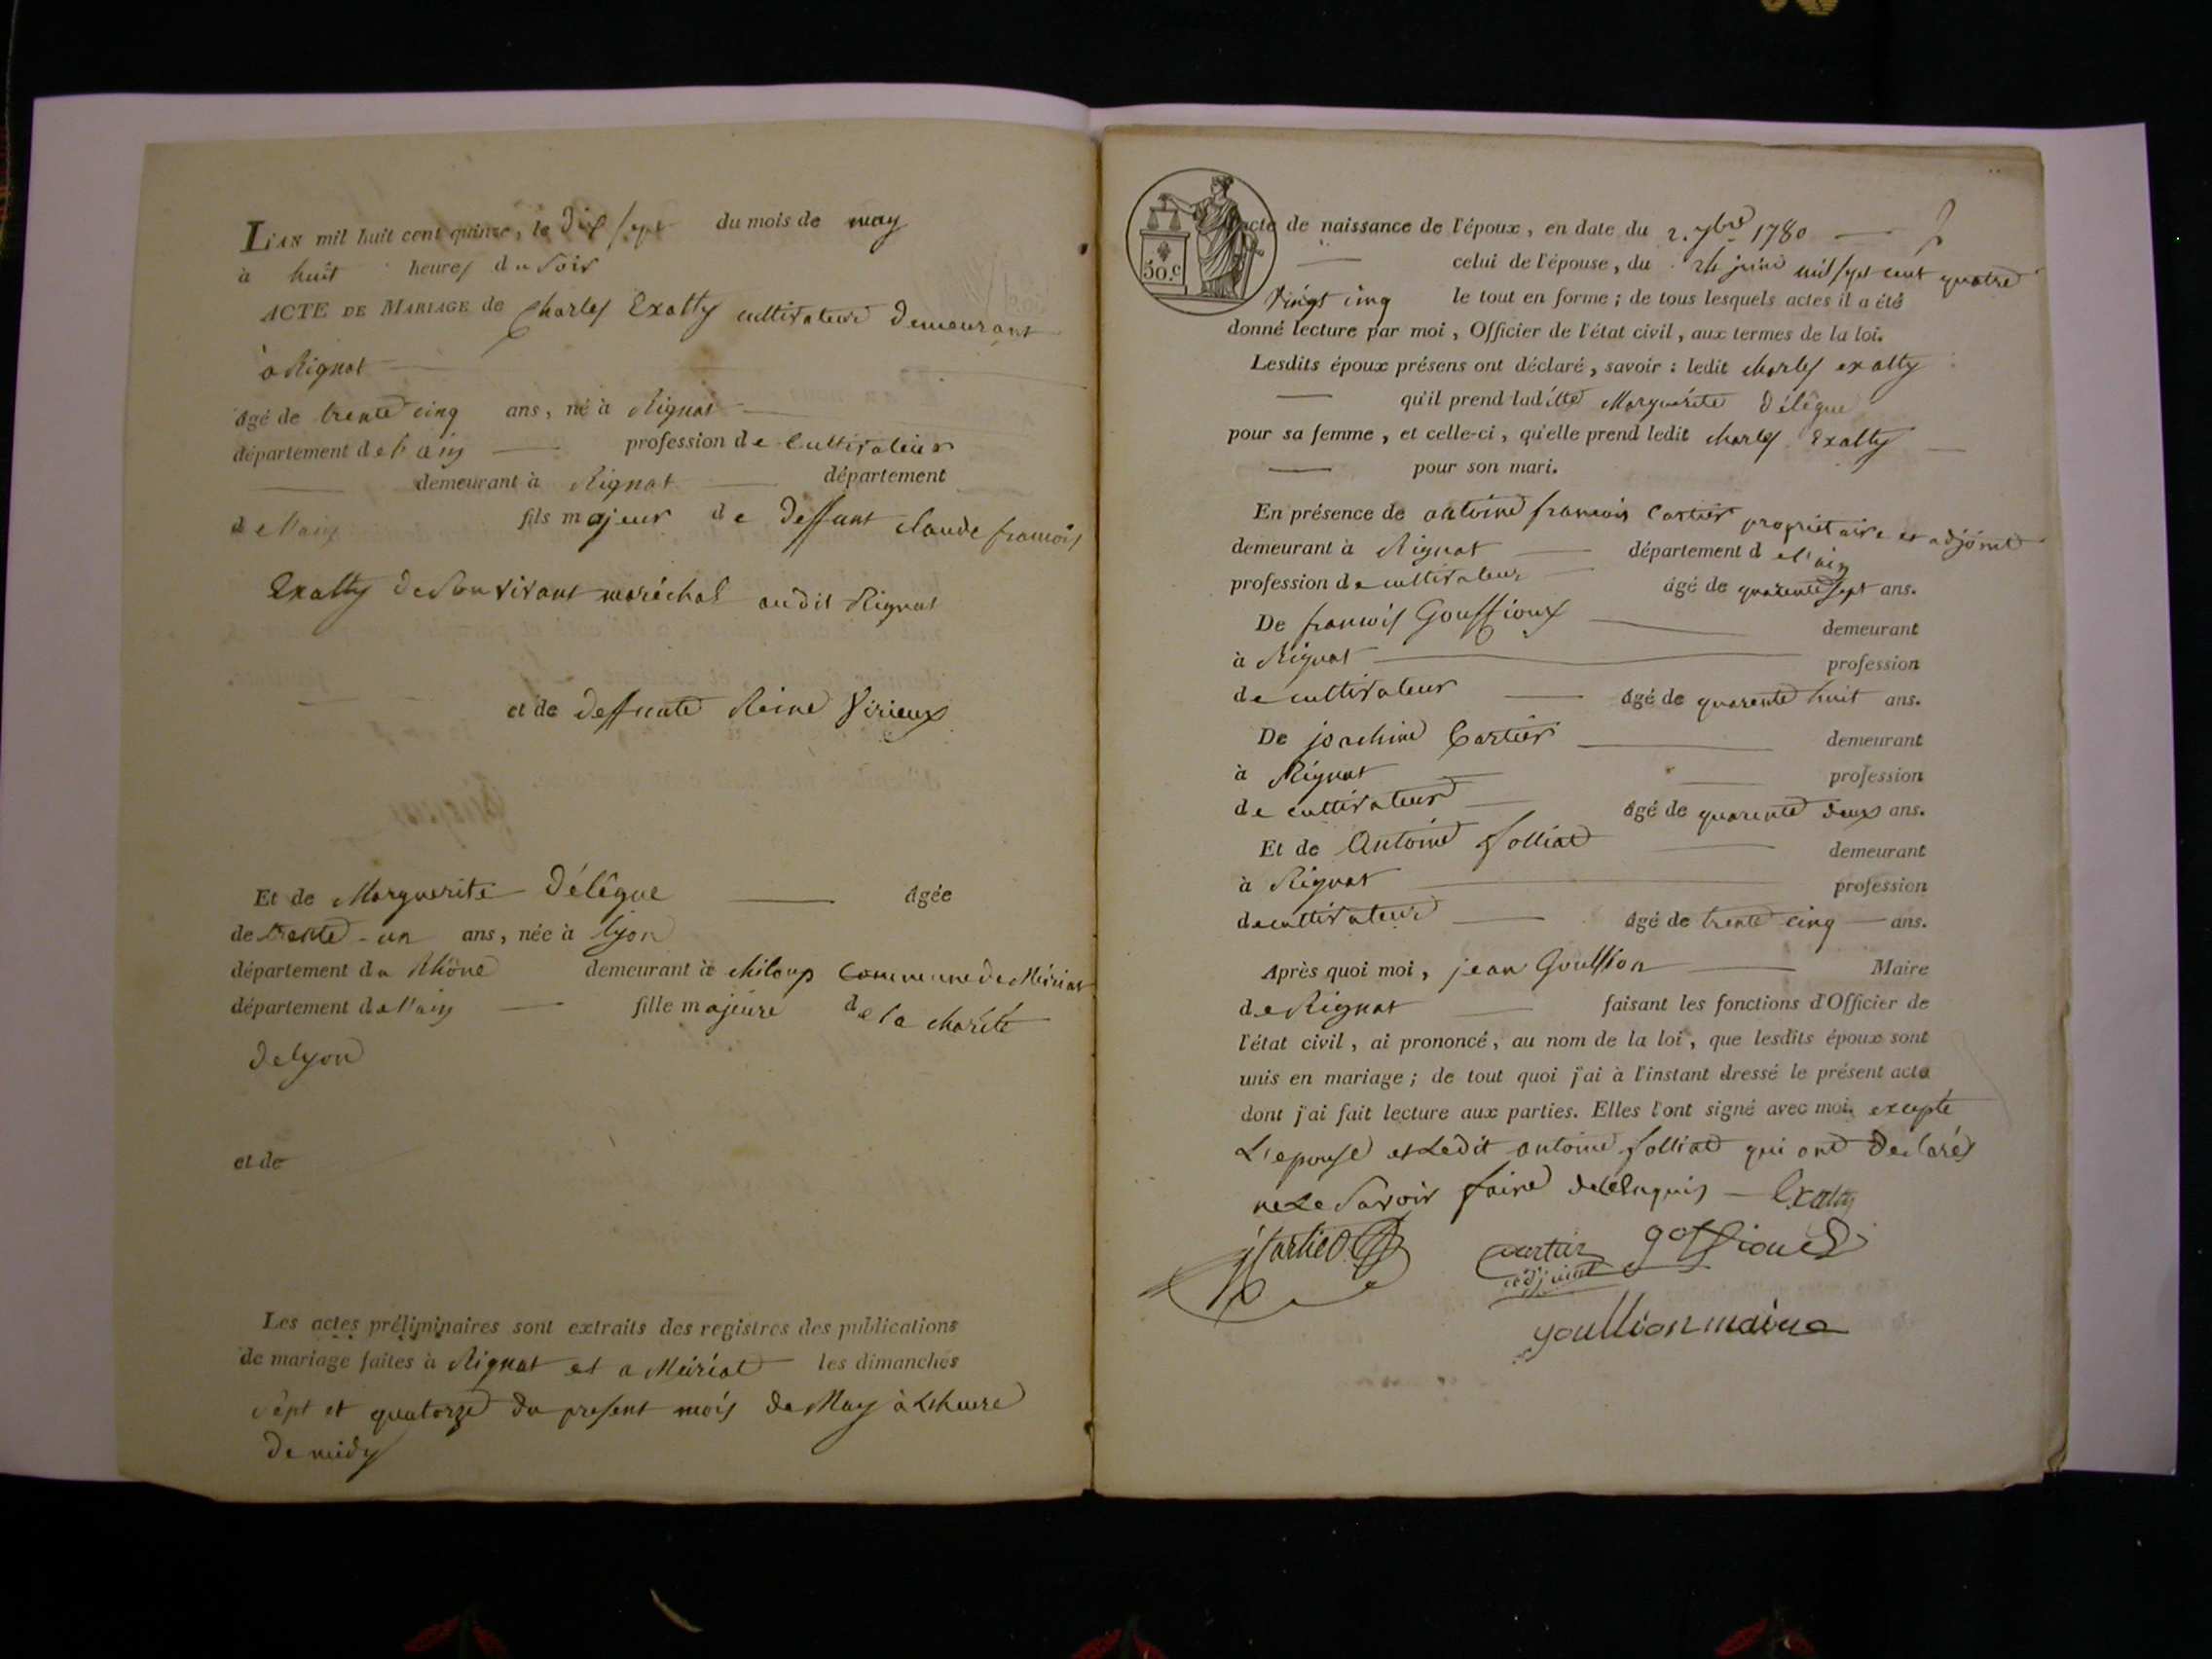 L'AN mil huit cent quinze, le dix sept du mois de may
à huit heures du soir
ACTE DE MARIAGE de Charles Exatty cultivateur demeurant
à Rignat
âgé de trente cinq ans, né à Rignat
département de l'ain profession de cultivateur
demeurant à Rignat département
de l'ain fils majeur de deffunt claude francois
Exatty de son vivant maréchal audit Rignat
et de deffunte Reine Virieux
Et de Marguerite Délêgue âgée
de trente-un ans, née à lyon
département du Rhône demeurant à chiloup commune de Mériat
département de l'ain fille majeure de la charité
de lyon
et de
Les actes préliminaires sont extraits des registres des publications
de mariage faites à Rignat et a Meiriat les dimanches
sept et quatorze du present mois de May à L'heure
de midy
50.c
acte de naissance de l'époux, en date du 2. 7bre 1780
celui de l'épouse, du 24 juin mil sept cent quatre
vingt cinq le tout en forme; de tous lesquels actes il a été
donné lecture par moi, Officier de l'état civil, aux termes de la loi.
Lesdits époux présens ont déclaré, savoir : ledit charles exatty
qu'il prend laditte Marguérite Délêgue
pour sa femme, et celle-ci, qu'elle prend ledit charles Exatty
pour son mari.
En présence de antoine francois Cartier propriétaire et adjoint
demeurant à Rignat département de l'ain
profession de cultivateur âgé de quarente sept ans.
De francois Gouffioux demeurant
à Rignat profession
de cultivateur âgé de quarente huit ans.
De joachim Cartier demeurant
à Rignat profession
de cultivateur âgé de quarente deux ans.
Et de Antoine folliat demeurant
à Rignat profession
de cultivateur âgé de trente cinq ans.
Après quoi moi, jean Goullion Maire
de Rignat faisant les fonctions d'Officier de
l'état civil, ai prononcé, au nom de la loi, que lesdits époux sont
unis en mariage; de tout quoi j'ai à l'instant dressé le présent acte
dont j'ai fait lecture aux parties. Elles l'ont signé avec moi. excepté
L'epouse et Ledit antoine folliat qui ont declarés
ne Le Savoir faire de ce enquis — Exatty
j Cartier cartier goffioux
adjoint
goullion maire